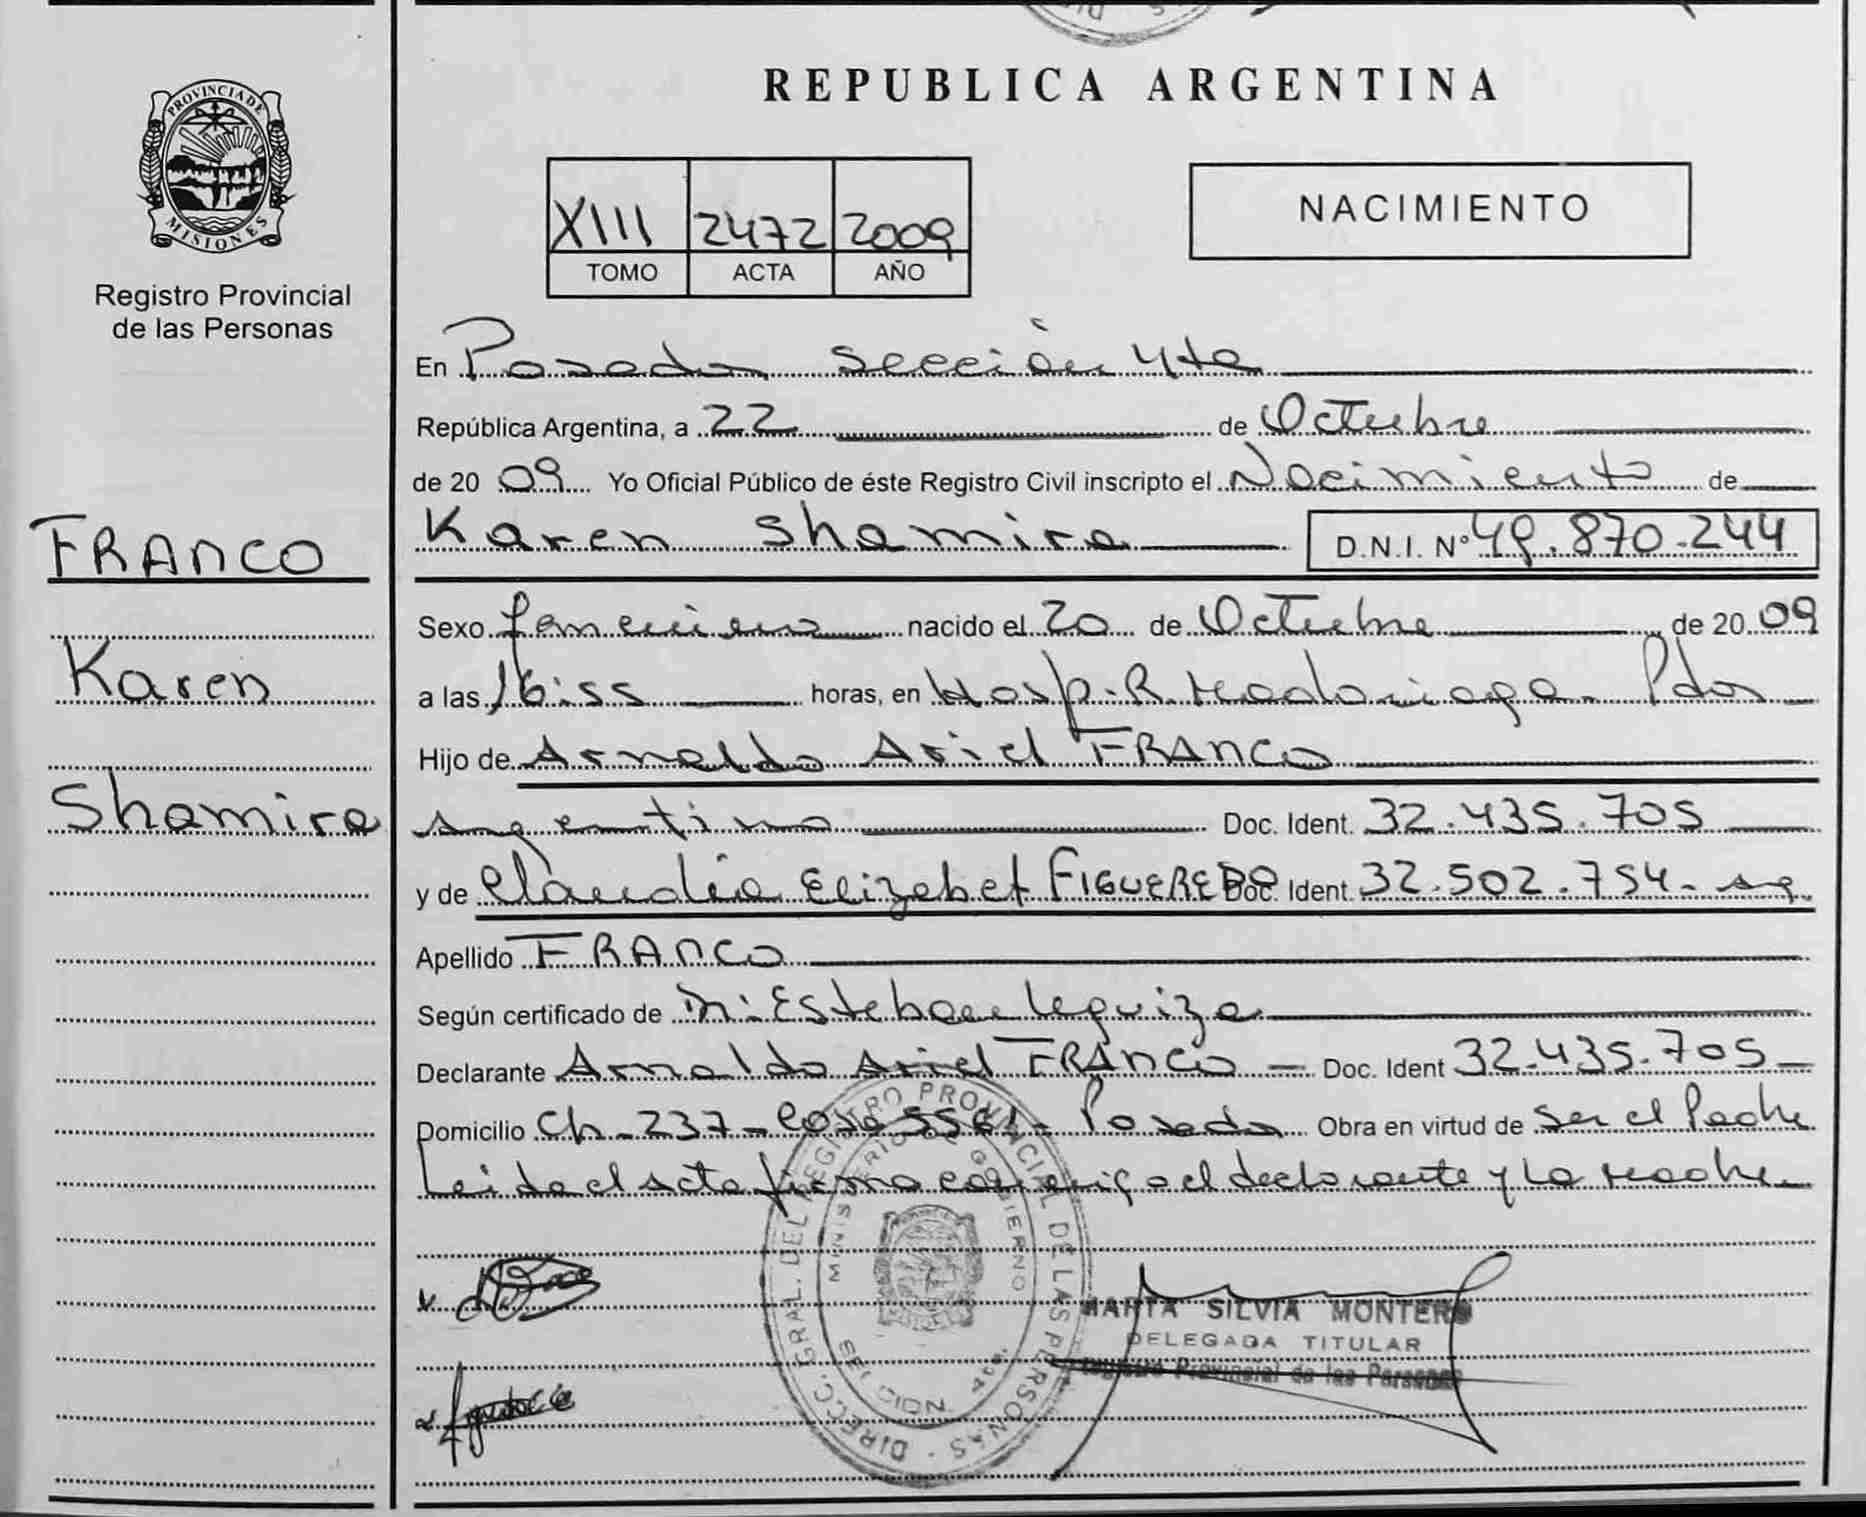 PROVINCIA DE
MISIONES
Registro Provincial
de las Personas
FRANCO
Karen
Shamira
REPUBLICA ARGENTINA
XIII 2472 2009
TOMO ACTA AÑO
NACIMIENTO
En Posadas sección 4ta
República Argentina, a 22 de Octubre
de 20 09 Yo Oficial Público de éste Registro Civil inscripto el Nacimiento de
Karen Shamira D.N.I. Nº 49.870.244
Sexo femenino nacido el 20 de Octubre de 20 09
a las 16:55 horas, en Hosp. R. Madariaga - Pdas
Hijo de Arnaldo Ariel FRANCO
argentino Doc. Ident. 32.435.705
y de Claudia Elizabet FIGUEREDO Doc. Ident. 32.502.754 - arg.
Apellido FRANCO
Según certificado de Dr. Esteban Leguiza
Declarante Arnaldo Ariel FRANCO Doc. Ident 32.435.705
Domicilio Ch - 237 - Casa - Posadas Obra en virtud de ser el Padre
Leída el acta firma conmigo el declarante y la madre
DIRECC. GRAL. DEL REGISTRO PROVINCIAL DE LAS PERSONAS
MINISTERIO DE GOBIERNO
MARTA SILVIA MONTERO
DELEGADA TITULAR
Registro Provincial de las Personas